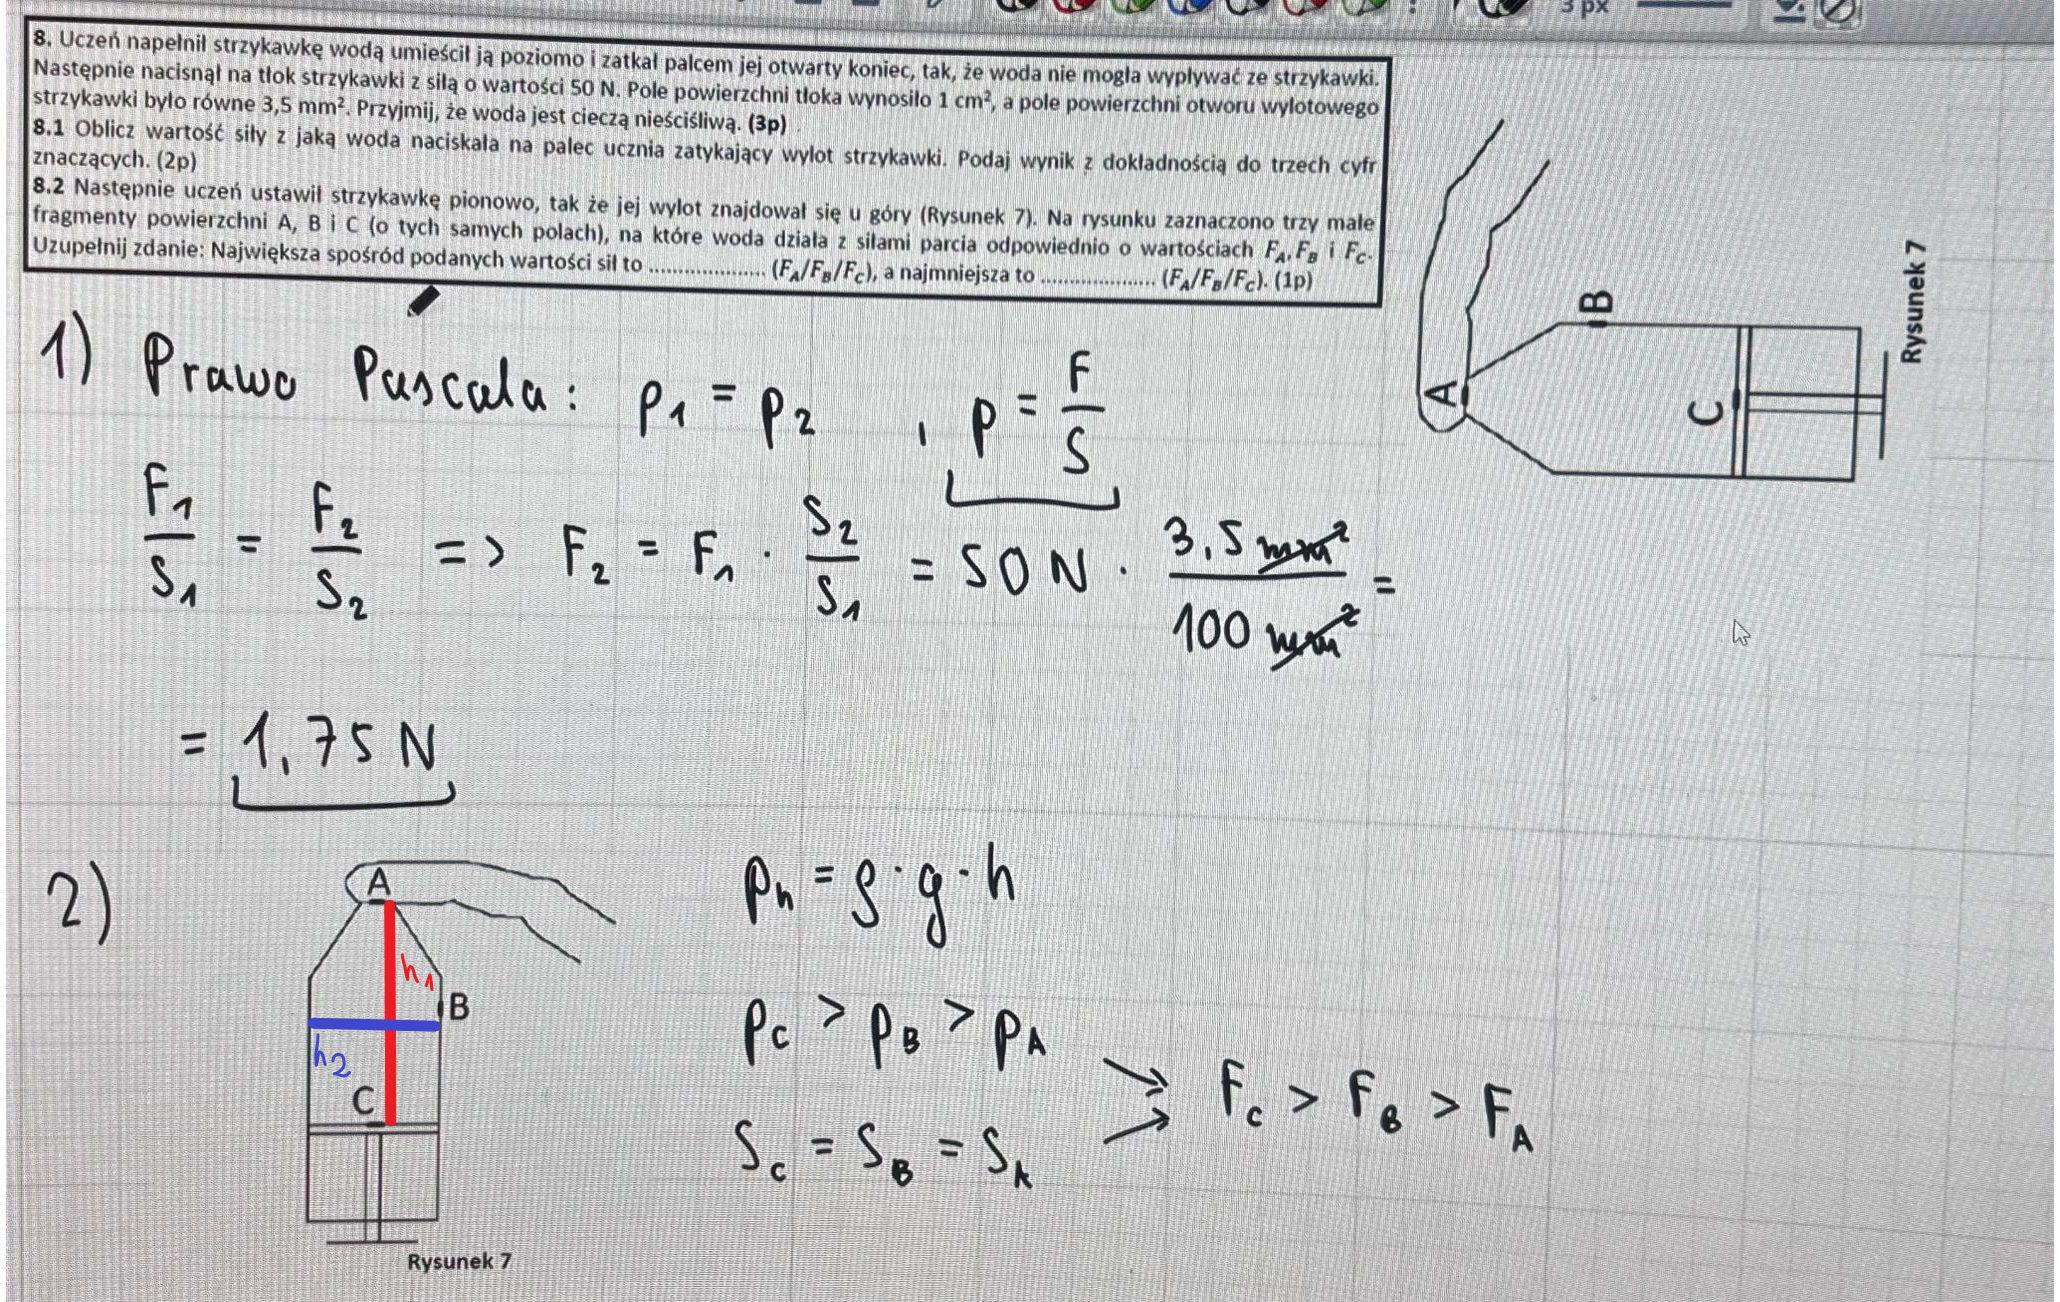 3 px
8. Uczeń napełnił strzykawkę wodą umieścił ją poziomo i zatkał palcem jej otwarty koniec, tak, że woda nie mogła wypływać ze strzykawki.
Następnie nacisnął na tłok strzykawki z siłą o wartości 50 N. Pole powierzchni tłoka wynosiło 1 cm², a pole powierzchni otworu wylotowego
strzykawki było równe 3,5 mm². Przyjmij, że woda jest cieczą nieściśliwą. (3p)
8.1 Oblicz wartość siły z jaką woda naciskała na palec ucznia zatykający wylot strzykawki. Podaj wynik z dokładnością do trzech cyfr
znaczących. (2p)
8.2 Następnie uczeń ustawił strzykawkę pionowo, tak że jej wylot znajdował się u góry (Rysunek 7). Na rysunku zaznaczono trzy małe
fragmenty powierzchni A, B i C (o tych samych polach), na które woda działa z siłami parcia odpowiednio o wartościach F_A, F_B i F_C.
Uzupełnij zdanie: Największa spośród podanych wartości sił to .................... (F_A/F_B/F_C), a najmniejsza to .................... (F_A/F_B/F_C). (1p)
A
B
C
Rysunek 7
1) Prawo Pascala: p₁ = p₂ , p = F/S
F₁/S₁ = F₂/S₂ => F₂ = F₁ · S₂/S₁ = 50 N · 3,5 mm²/100 mm² =
= 1,75 N
2)
A
h₁
B
h₂
C
Rysunek 7
pₕ = ρ · g · h
p_C > p_B > p_A
S_C = S_B = S_A
F_C > F_B > F_A